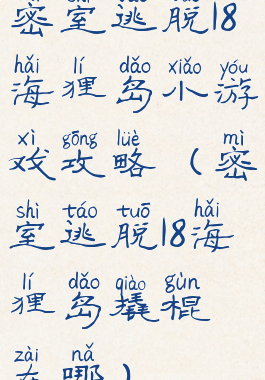 密室逃脱18
hǎi lí dǎo xiǎo yóu
海狸岛小游
xì gōng lüè mì
戏攻略 (密
shì táo tuō hǎi
室逃脱18海
lí dǎo qiào gùn
狸岛撬棍
zài nǎ
在哪)